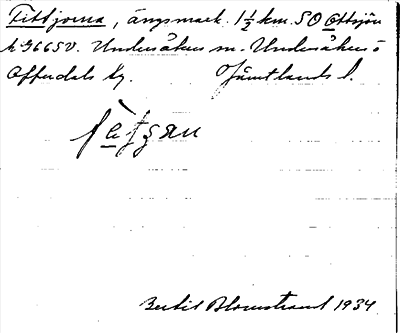 Fittjorna, ängsmark. 1½ km. SO Ottsjön
h 3665V. Undersåkers sn. Undersåkers o
Offerdals tg. Jämtlands l.
Bertil Blomstrand 1934